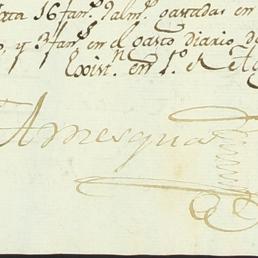 ata 16 fan.s 9 alm.s gastadas en
o, y 3 fan.s en el gasto diario de
Exist.n en 1.o de Ag
Amesqua